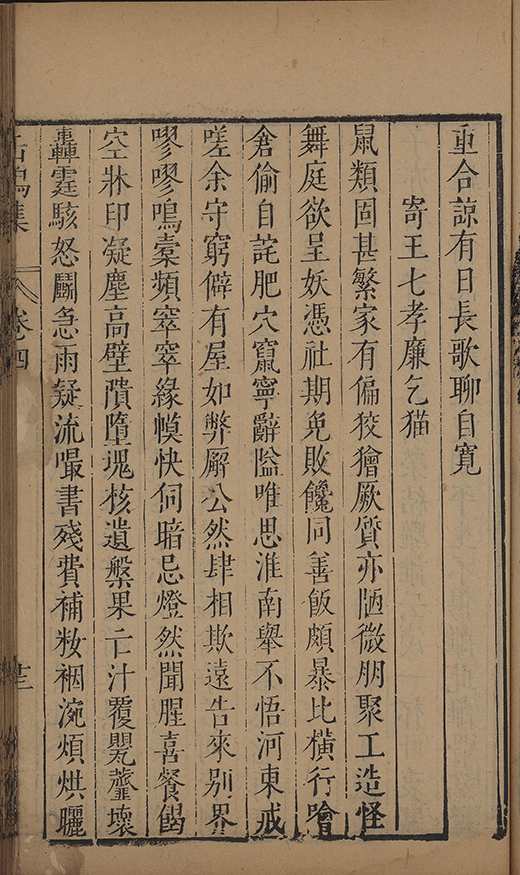 重合諒有日長歌聊自寬
寄王七孝廉乞猫
鼠類固甚繁家有偏狡獪厥質亦陋微朋聚工造怪
舞庭欲呈妖憑社期免敗饞同善飯頗暴比橫行噲
倉偷自詫肥穴竄寧辭隘唯思淮南舉不悟河東戒
嗟余守窮僻有屋如弊廨公然肆相欺遠告來別界
嘐嘐鳴橐頻窣窣緣幙快伺暗忌燈然聞腥喜餐餲
空牀印凝塵高壁隤墮塊核遺槃果亡汁覆甖虀壞
轟霆駭怒鬬急雨疑流嘬書殘費補籹裀涴煩烘曬
集
卷四